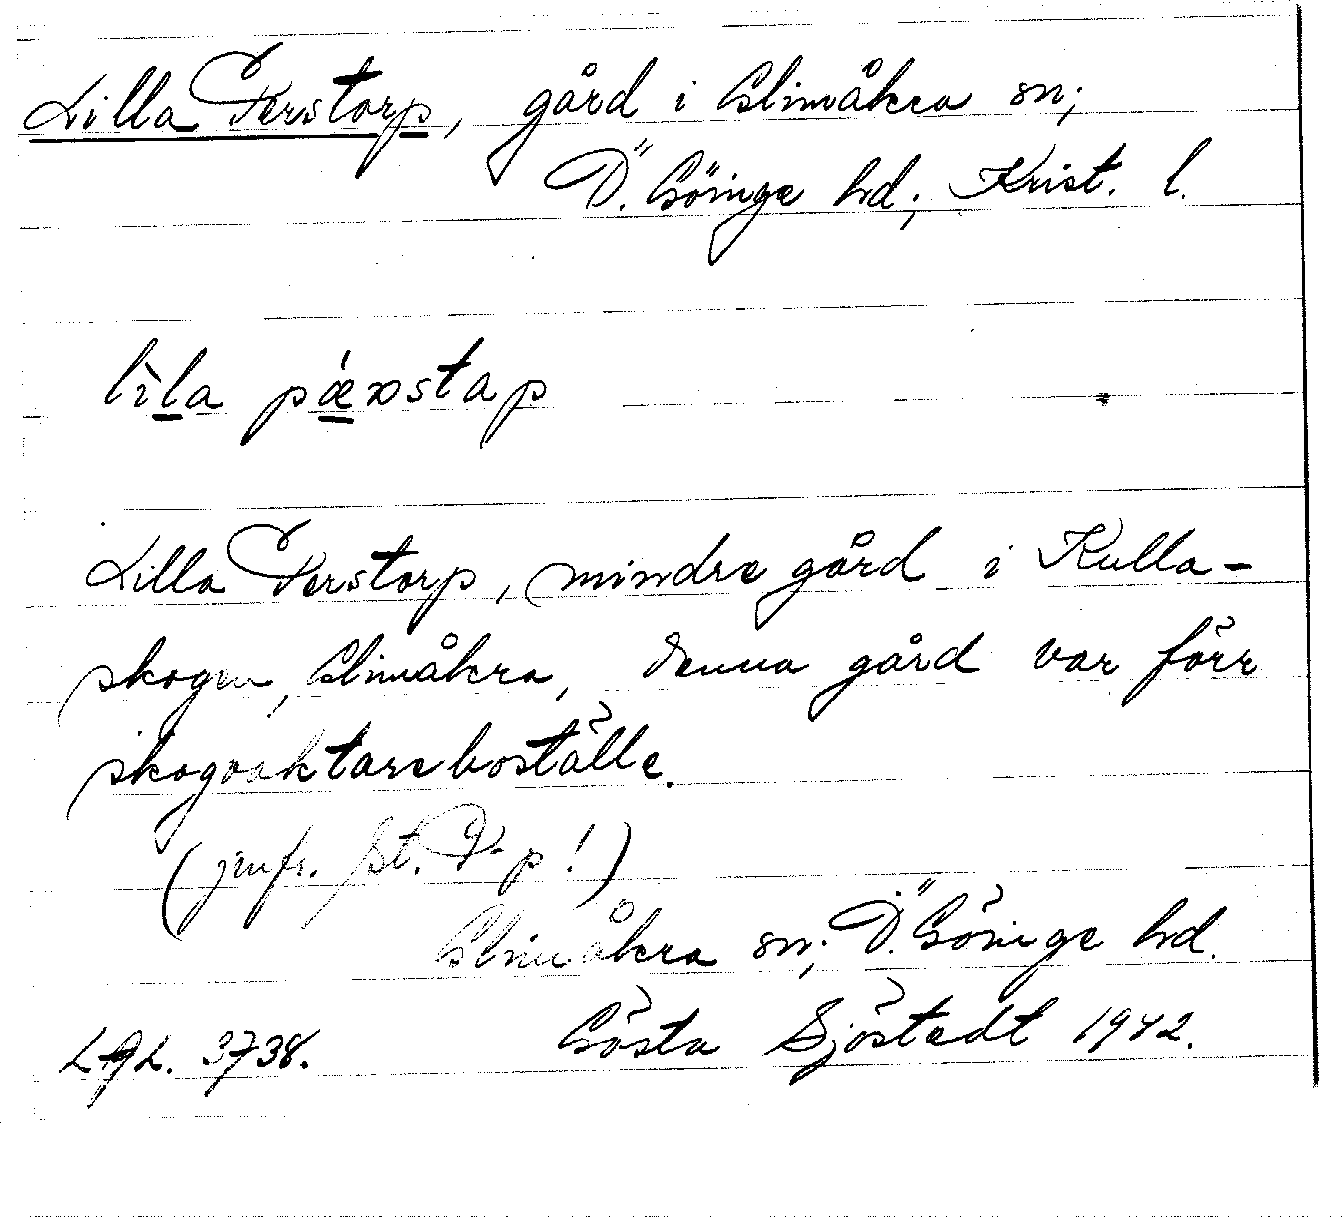 Lilla Perstorp, gård i Glimåkra sn;
Ö. Göinge hd; Krist. l.
lìla pǽrstap
Lilla Perstorp, mindre gård i Kulla-
skogen, Glimåkra, denna gård var förr
skogvaktareboställe.
(jmfr. St. P-p!)
Glimåkra sn; Ö. Göinge hd.
LAL. 3738. Gösta Sjöstedt 1942.